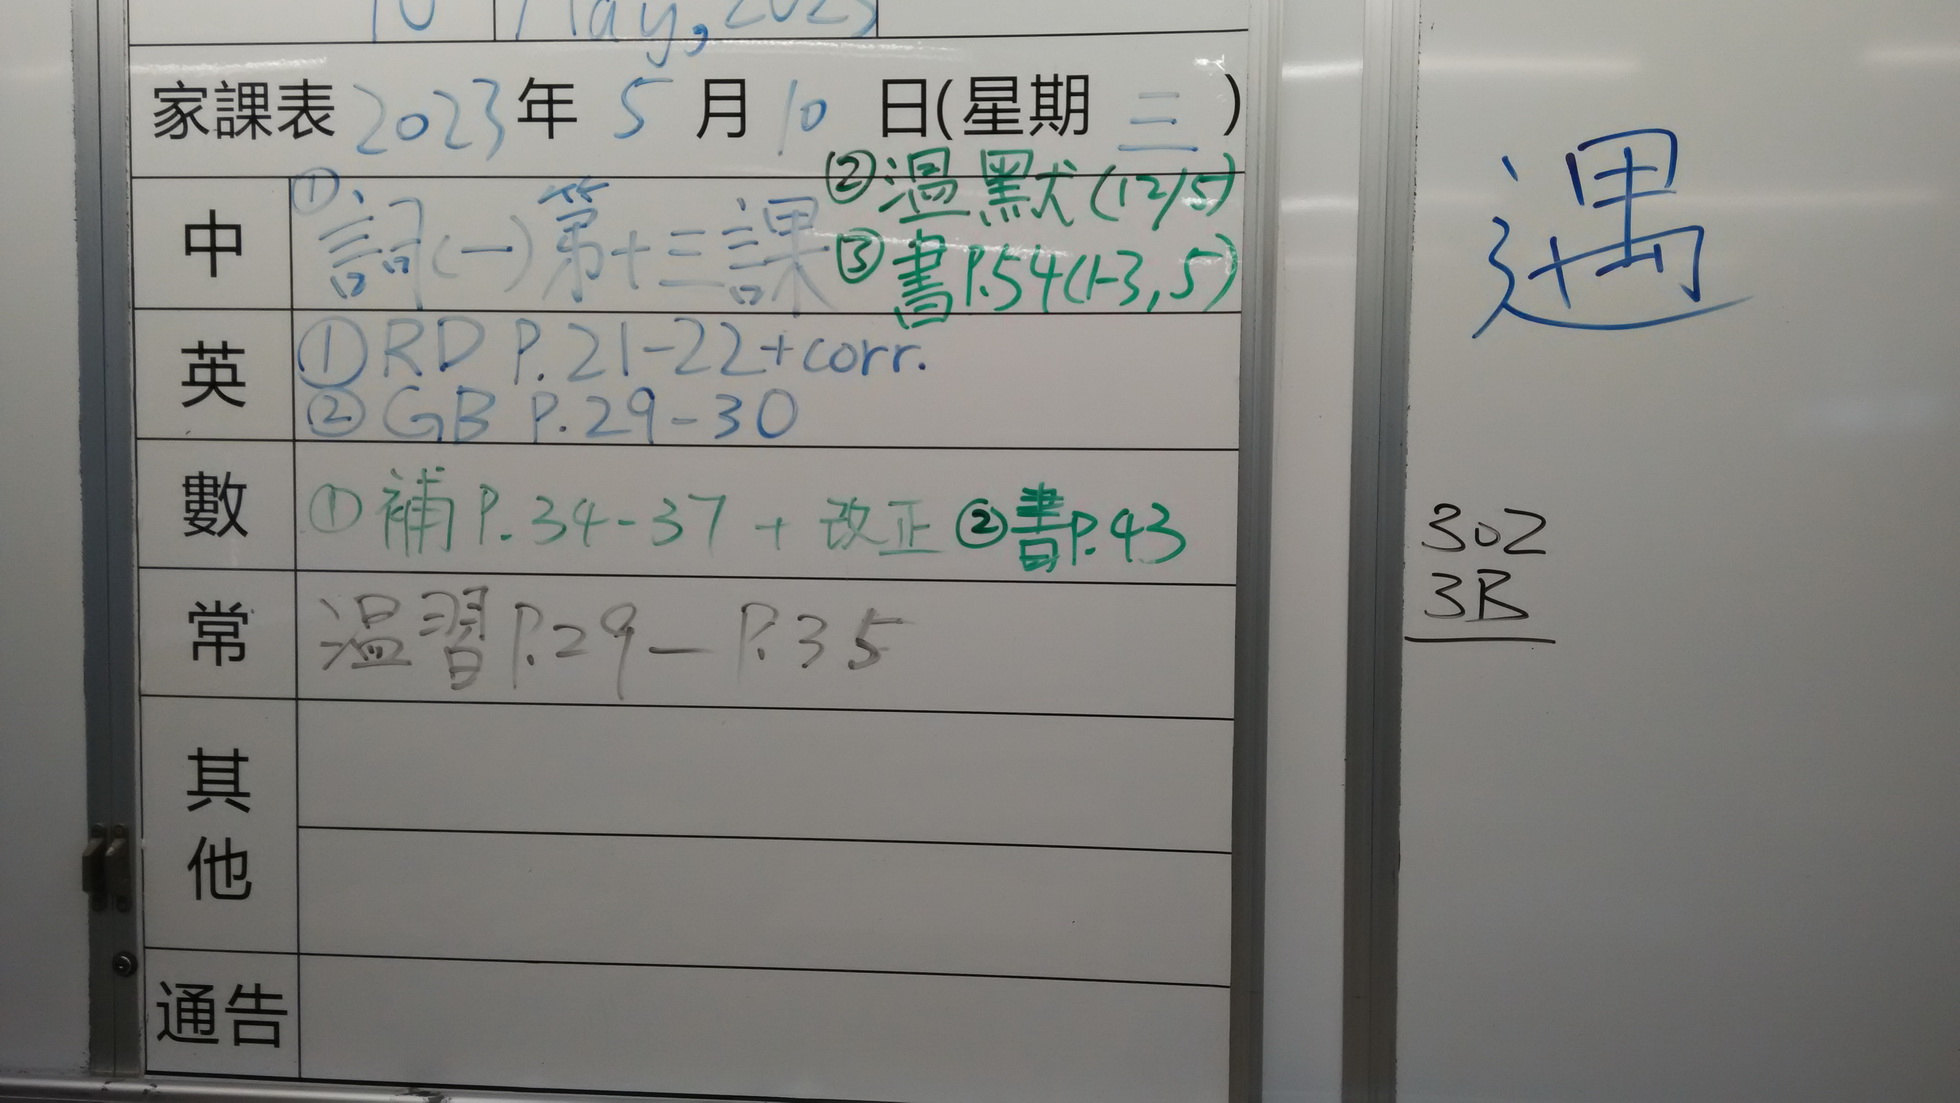 10 May, 2023
家課表 2023年 5 月 10 日(星期 三 )
中
① 詞(一)第十三課
② 溫默(12/5)
③ 書P.54(1-3,5)
英
① RD P.21-22+corr.
② GB P.29-30
數
① 補P.34-37 + 改正 ② 書P.43
常
溫習P.29—P.35
其他
通告
遇
302
3B